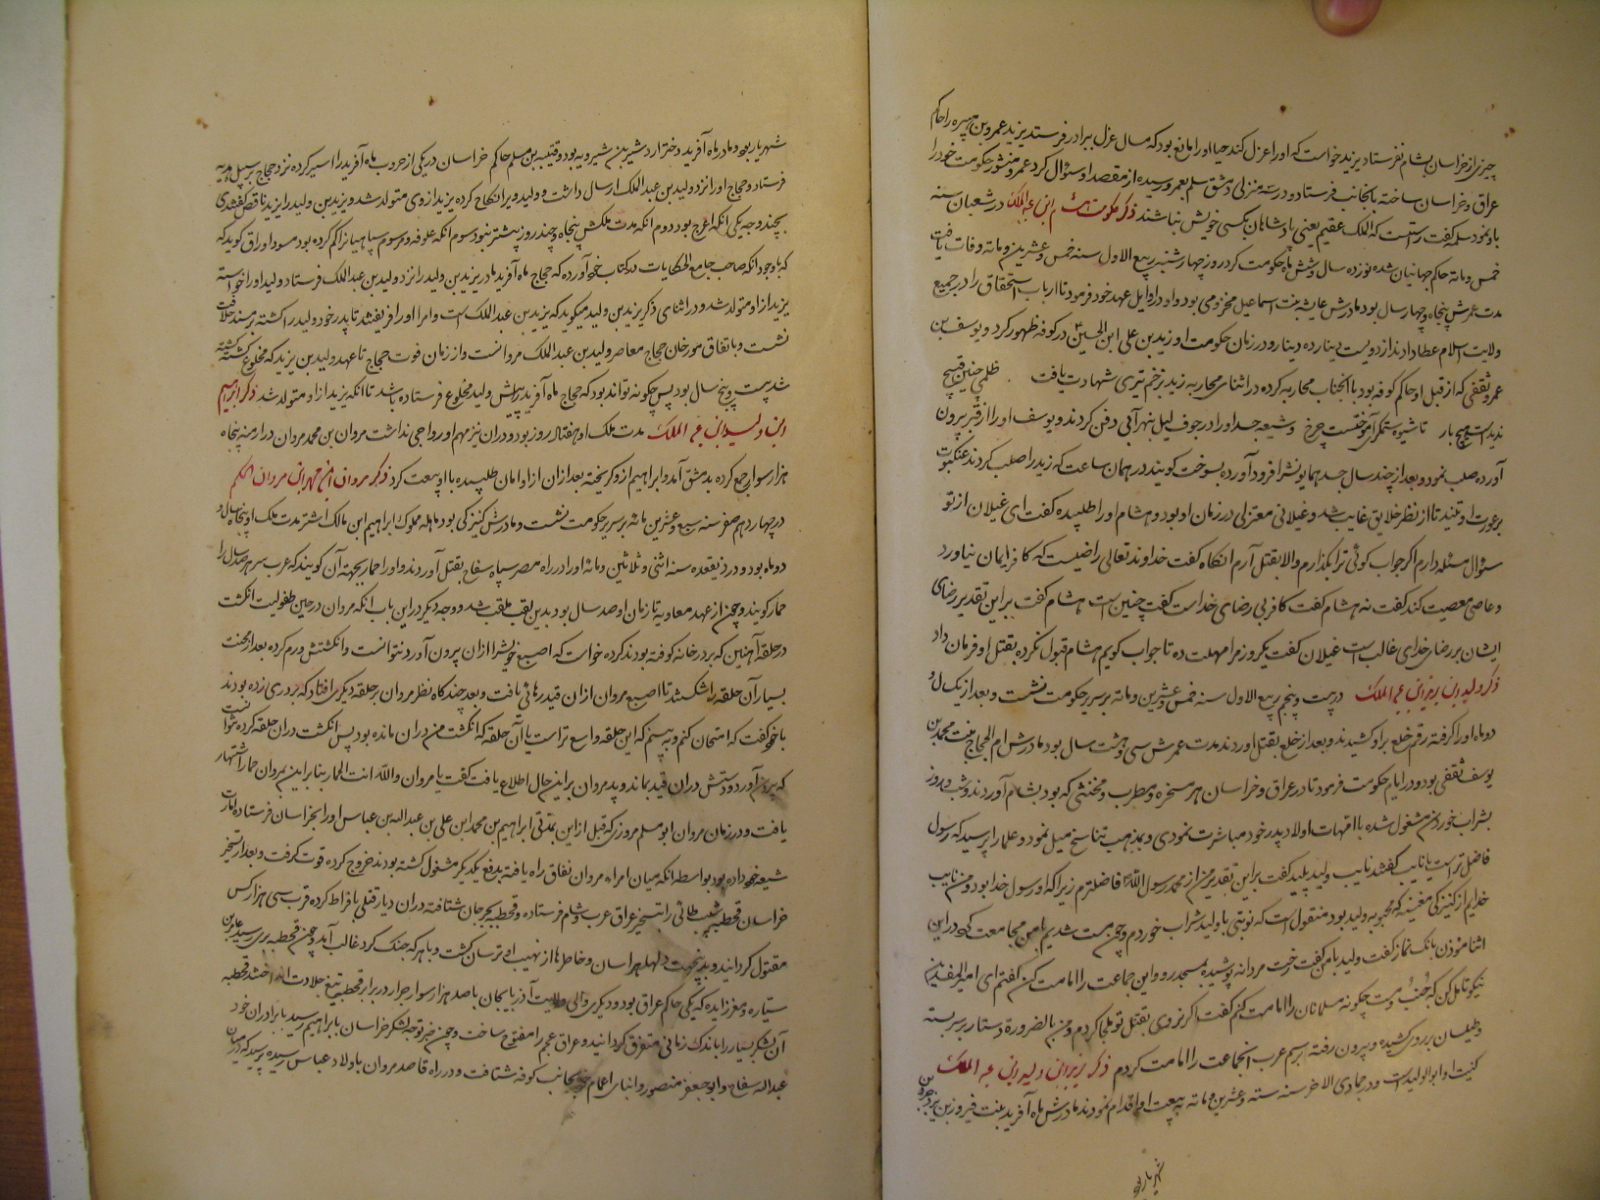 چیزی از خراسان بشام نفرستاد یزید خواست که او را عزل کند حیا او را مانع بود که مسال عزل ببرادر فرستد یزید عمرو بن هبیره را حاکم
عراق و خراسان ساخته بانجانب فرستاد و در سه منزلی دمشق مسلم بعمرو رسیده از مقصد او سؤال کرد عمرو منشور حکومت خود را
باو نمود مسلمه گفت راستست که الملک عقیم یعنی پادشاهان بکسی خویش نباشند ذکر حکومت هشام ابن عبد الملک در شعبان سنه
خمس و مایة حاکم جهانیان شده نوزده سال و شش ماه حکومت کرد روز چهارشنبه ربیع الاول سنه خمس و عشرین و مایة وفات یافت
مدت عمرش پنجاه و چهار سال بود مادرش عایشه بنت اسماعیل مخزومی بود و او در اوایل عهد خود فرمود تا ارباب استحقاق را در جمیع
ولایت اسلام عطا دادند از دویست دینار ده دینار و در زمان حکومت او زید بن علی ابن الحسین در کوفه ظهور کرد و یوسف بن
عمرو ثقفی که از قبل او حاکم کوفه بود با انجناب محاربه کرده در اثنای محاربه زید بزخم تیری شهادت یافت ظلمی چنین قبیح
ندیدست هیچ یار تا شیوه ستمگری آموختست چرخ و شیعه جسد او را در جوف لیل بنهر آبی دفن کردند و یوسف او را از قبر بیرون
آورده صلب نمود و بعد از چند سال جسد همایونشرا فرود آورده بسوخت گویند در همان ساعت که زید را صلب کردند عنکبوت
بر عورت او تنید تا از نظر خلایق غایب شد و غیلانی معتزلی در زمان او بود و هشام او را طلبیده گفت ای غیلان از تو
سؤال مسئله دارم اگر جواب گوئی ترا بگذارم والا بقتل آرم انکاه گفت خداوند تعالی راضیست که کافر ایمان نیاورد
و عاصی معصیت کند گفت نه هشام گفت کافر بی رضای خداست گفت چنین است هشام گفت بر این تقدیر رضای
ایشان بر رضای خدای غالب است غیلان گفت یکروز مرا مهلت ده تا جواب گویم هشام قبول نکرده بقتل او فرمان داد
ذکر ولید ابن یزید ابن عبد الملک در بیست و پنجم ربیع الاول سنه خمس و عشرین و مایة بر سریر حکومت نشست و بعد از یکسال و
دو ماه او را گرفته رقم خلع بر او کشیدند و بعد از خلع بقتل اوردند مدت عمرش سی و هشت سال بود مادرش ام الحجاج بنت محمد بن
یوسف ثقفی بود و در ایام حکومت فرمود تا در عراق و خراسان هر مسخره و مطرب و مخنثی که بود بشام آوردند و شب و روز
بشراب خوردن مشغول شده با امهات اولاد پدر خود مباشرت نمودی و بمذهب تناسخ میل نمود و علما را پرسید که رسول
فاضل تر است یا نایب گفتند نایب ولید پلید گفت بر این تقدیر من از محمد رسول الله فاضلترم زیرا که او رسول خدا بود و من نایب
خدایم از کنیزکی مغنیه که محبوبه ولید بود منقولست که نوبتی با ولید شراب خوردم و چون مست شدیم با من مجامعت کرد در این
اثنا مؤذن بانک نماز گفت ولید با من گفت رخت مردانه پوشیده بمسجد رو و این جماعت را امامت کن گفتم ای امیر المفسدین
نیکو تامل کن که جنب و مست چگونه مسلمانان را امامت کنم گفت اگر نروی بقتل تو ملجا گردم و من بالضرورة دستار بر سر بسته
و طیلسان بر روی کشیده و بیرون رفته برسم عرب انجماعت را امامت کردم ذکر یزید ابن ولید ابن عبد الملک
کنیت او ابو الولید است و در جمادی الاخر سنه سته و عشرین و مایة به بیعت او اقدام نمودند مادرش ماه آفرید بنت فیروز بن یزدجرد بن
شهریار بود
شهریار بود و مادر ماه آفرید دختر اردشیر بن شیرویه بود و قتیبه بن مسلم حاکم خراسان در یکی از حروب ماه آفرید را اسیر کرده نزد حجاج برسبیل هدیه
فرستاد و حجاج او را نزد ولید بن عبد الملک ارسال داشت و ولید ویرا نکاح کرده یزید از وی متولد شد و یزید بن ولید را یزید ناقص گفتندی
بچند وجه یکی انکه اعرج بود دوم انکه مدت ملکش پنجاه و چند روز بیشتر نبود سوم انکه علوفه و مرسوم سپاهیانرا کم کرده بود مسود اوراق گوید که
که با وجود انکه صاحب جامع الحکایات در کتاب خود آورده که حجاج ماه آفرید مادر یزید بن ولید را نزد ولید بن عبد الملک فرستاد ولید او را خواسته
یزید از او متولد شد و در اثنای ذکر یزید بن ولید میگوید که یزید بن عبد الملک است و امرا او را فریفتند تا پدر خود ولید را کشته بر مسند خلافت
نشست و باتفاق مورخان حجاج معاصر ولید بن عبد الملک مروانست و از زمان فوت حجاج تا عهد ولید بن یزید که مخلوع گشته کشته
شد بیست و پنج سال بود پس چگونه تواند بود که حجاج ماه آفرید را پیش ولید مخلوع فرستاده باشد تا انکه یزید از او متولد شد ذکر ابراهیم
ابن ولید ابن عبد الملک مدت ملک او هفتاد روز بود و در ان نیز مهم او رواجی نداشت مروان بن محمد مروان در ارمنیه پنجاه
هزار سوار جمع کرده بدمشق آمد و ابراهیم از و گریخته بعد از ان از او امان طلبیده با او بیعت کرد ذکر مروان ابن محمد ابن مروان الحکم
در چهاردهم صفر سنه سبع و عشرین مایة بر سریر حکومت نشست و مادرش کنیزکی بود ماهله مملوک ابراهیم ابن مالک اشتر مدت ملک او پنجسال و
دو ماه بود و در ذیقعده سنه اثنی و ثلاثین و مایة او را در راه مصر سپاه سفاح بقتل آوردند و او را حمار بجهة آن گویند که عرب سر هر صد سال را
حمار گویند و چون از عهد معاویه تا زمان او صد سال بود بدین لقب ملقب شد و وجه دیگر در این باب انکه مروان در حین طفولیت انگشت
در حلقه آهنین که بر در خانه کوفته بودند کرده خواست که اصبع خویشرا از ان بیرون آورد نتوانست و انگشتش ورم کرده بعد از محنت
بسیار آن حلقه را شکستند تا اصبع مروان از ان قید رهائی یافت و بعد چند گاه نظر مروان بر حلقه دیگری افتاد که بر دری زده بودند
با خود گفت که امتحان کنم و ببینم که این حلقه واسع تر است یا آن حلقه که انگشت من در ان مانده بود پس انگشت در ان حلقه کرده نتوانست
که بیرون آورد و دستش در ان قید بماند و پدر مروان بر این حال اطلاع یافت گفت یا مروان والله انت الحمار بنا بر این مروان حمار اشتهار
یافت و در زمان مروان ابو مسلم مروزی که قبل از این بمدتی ابراهیم بن محمد ابن علی بن عبدالله بن عباس او را بخراسان فرستاده امارت
شیعه خود داده بود بواسطه انکه میان امراء مروان نفاق راه یافته بدفع یکدیگر مشغول گشته بودند خروج کرده قوت گرفت و بعد از تسخیر
خراسان قحطبه بن شبیب طائی را بتسخیر عراق عرب و شام فرستاده و قحطبه بجرجان شتافته در ان دیار قتلی بافراط کرده قریب سی هزار کس
مقتول گردانید و بدینجهت دلها هراسان و خاطرها از نهیب او ترسان گشت و با هر که جنگ کرد غالب آمد و چون قحطبه بری رسید عامر بن
ستیاره و معن زایده که یکی حاکم عراق بود و دیگری والی طالیت آذربایجان با صد هزار سوار جرار در برابر قحطبه تیغ جلادت افراختند قحطبه
آن لشکر بسیار را باندک زمانی متفرق گردانید و عراق عجم را مفتوح ساخت و چون خبر توجه لشکر خراسان بابراهیم رسید با برادران خود
عبداله سفاح و ابو جعفر منصور و ابنای اعمام خود بجانب کوفه شتافت و در راه قاصد مروان باولاد عباس رسیده پرسید که از میان